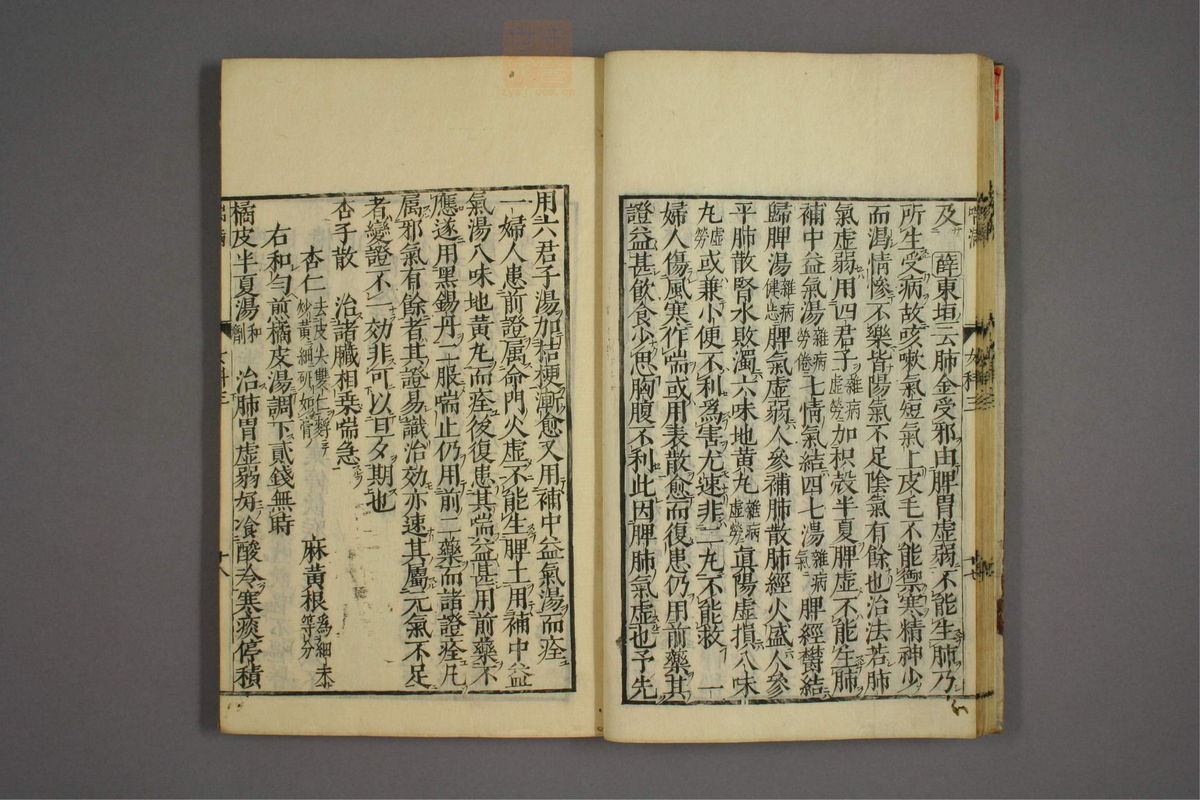 及 薛東垣云肺金受邪由脾胃虚弱不能生肺乃
所生受病故咳嗽氣短氣上皮毛不能禦寒精神少
而渴情慘不樂皆陽氣不足陰氣有餘也治法若肺
氣虚弱用四君子雜病虚勞加枳殻半夏脾虚不能生肺
補中益氣湯雜病勞倦七情氣結四七湯雜病氣脾經欝結
歸脾湯雜病健忘脾氣虚弱人參補肺散肺經火盛人參
平肺散腎水敗濁六味地黄丸雜病虚勞眞陽虚損八味
丸虚勞或兼小便不利爲害尤速非二丸不能救 一
婦人傷風寒作喘或用表散愈而復患仍用前藥其
證益甚飲食少思胸腹不利此因脾肺氣虚也予先
用六君子湯加桔梗漸愈又用補中益氣湯而痊
一婦人患前證属命門火虚不能生脾土用補中益
氣湯八味地黄丸而痊後復患其喘益甚用前藥不
應遂用黒錫丹二服喘止仍用前二藥而諸證痊凡
属邪氣有餘者其證易識治効亦速其屬元氣不足
者變證不一効非可以旦夕期也
杏子散 治諸臟相乗喘急
杏仁去皮尖雙仁麩炒黄細研如膏 麻黄根等分爲細末
右和勻煎橘皮湯調下貳錢無時
橘皮半夏湯和劑 治肺胃虚弱好食酸冷寒痰停積
女科三
十八